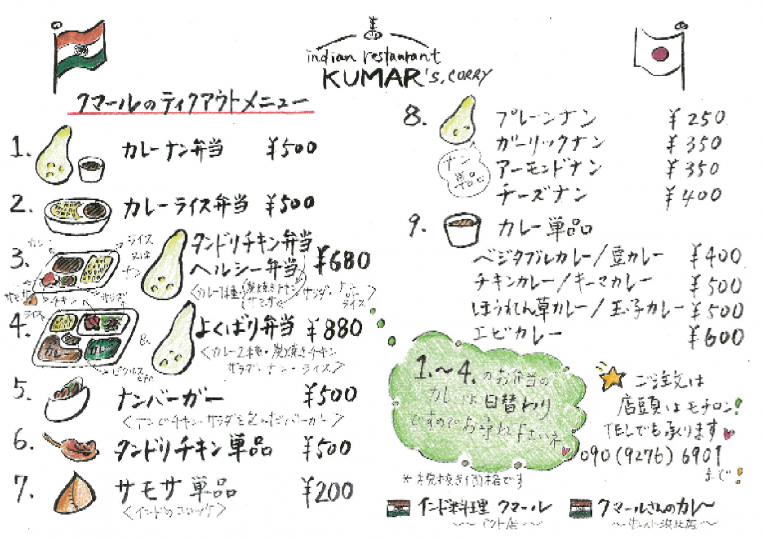 indian restaurant
KUMAR's.CORRY
クマールのティクアウトメニュー
1. カレーナン弁当 ¥500
2. カレーライス弁当 ¥500
3. タンドリチキン弁当
ヘルシー弁当 ¥680
ライス
又は
ナン
カレー
チキン
サラダ
ライス
4. よくばり弁当 ¥880
<カレー2種・炭焼きチキン
サラダ・ナン・ライス>
5. ナンバーガー ¥500
<ナンでチキン・サラダを包んだバーガー>
6. タンドリチキン単品 ¥500
7. サモサ単品 ¥200
<インドのコロッケ>
8. プレーンナン ¥250
ガーリックナン ¥350
アーモンドナン ¥350
チーズナン ¥400
ナン
単品
9. カレー単品
ベジタブルカレー/豆カレー ¥400
チキンカレー/キーマカレー ¥500
ほうれん草カレー/玉子カレー ¥500
エビカレー ¥600
1.~4.のお弁当の
カレーは日替わり
ですのでお尋ね下さいネ
ご注文は
店頭はモチロン!
TELでも承ります
090(9276)6901
まで!
※税抜き価格です
インド料理 クマール
クマールさんのカレー